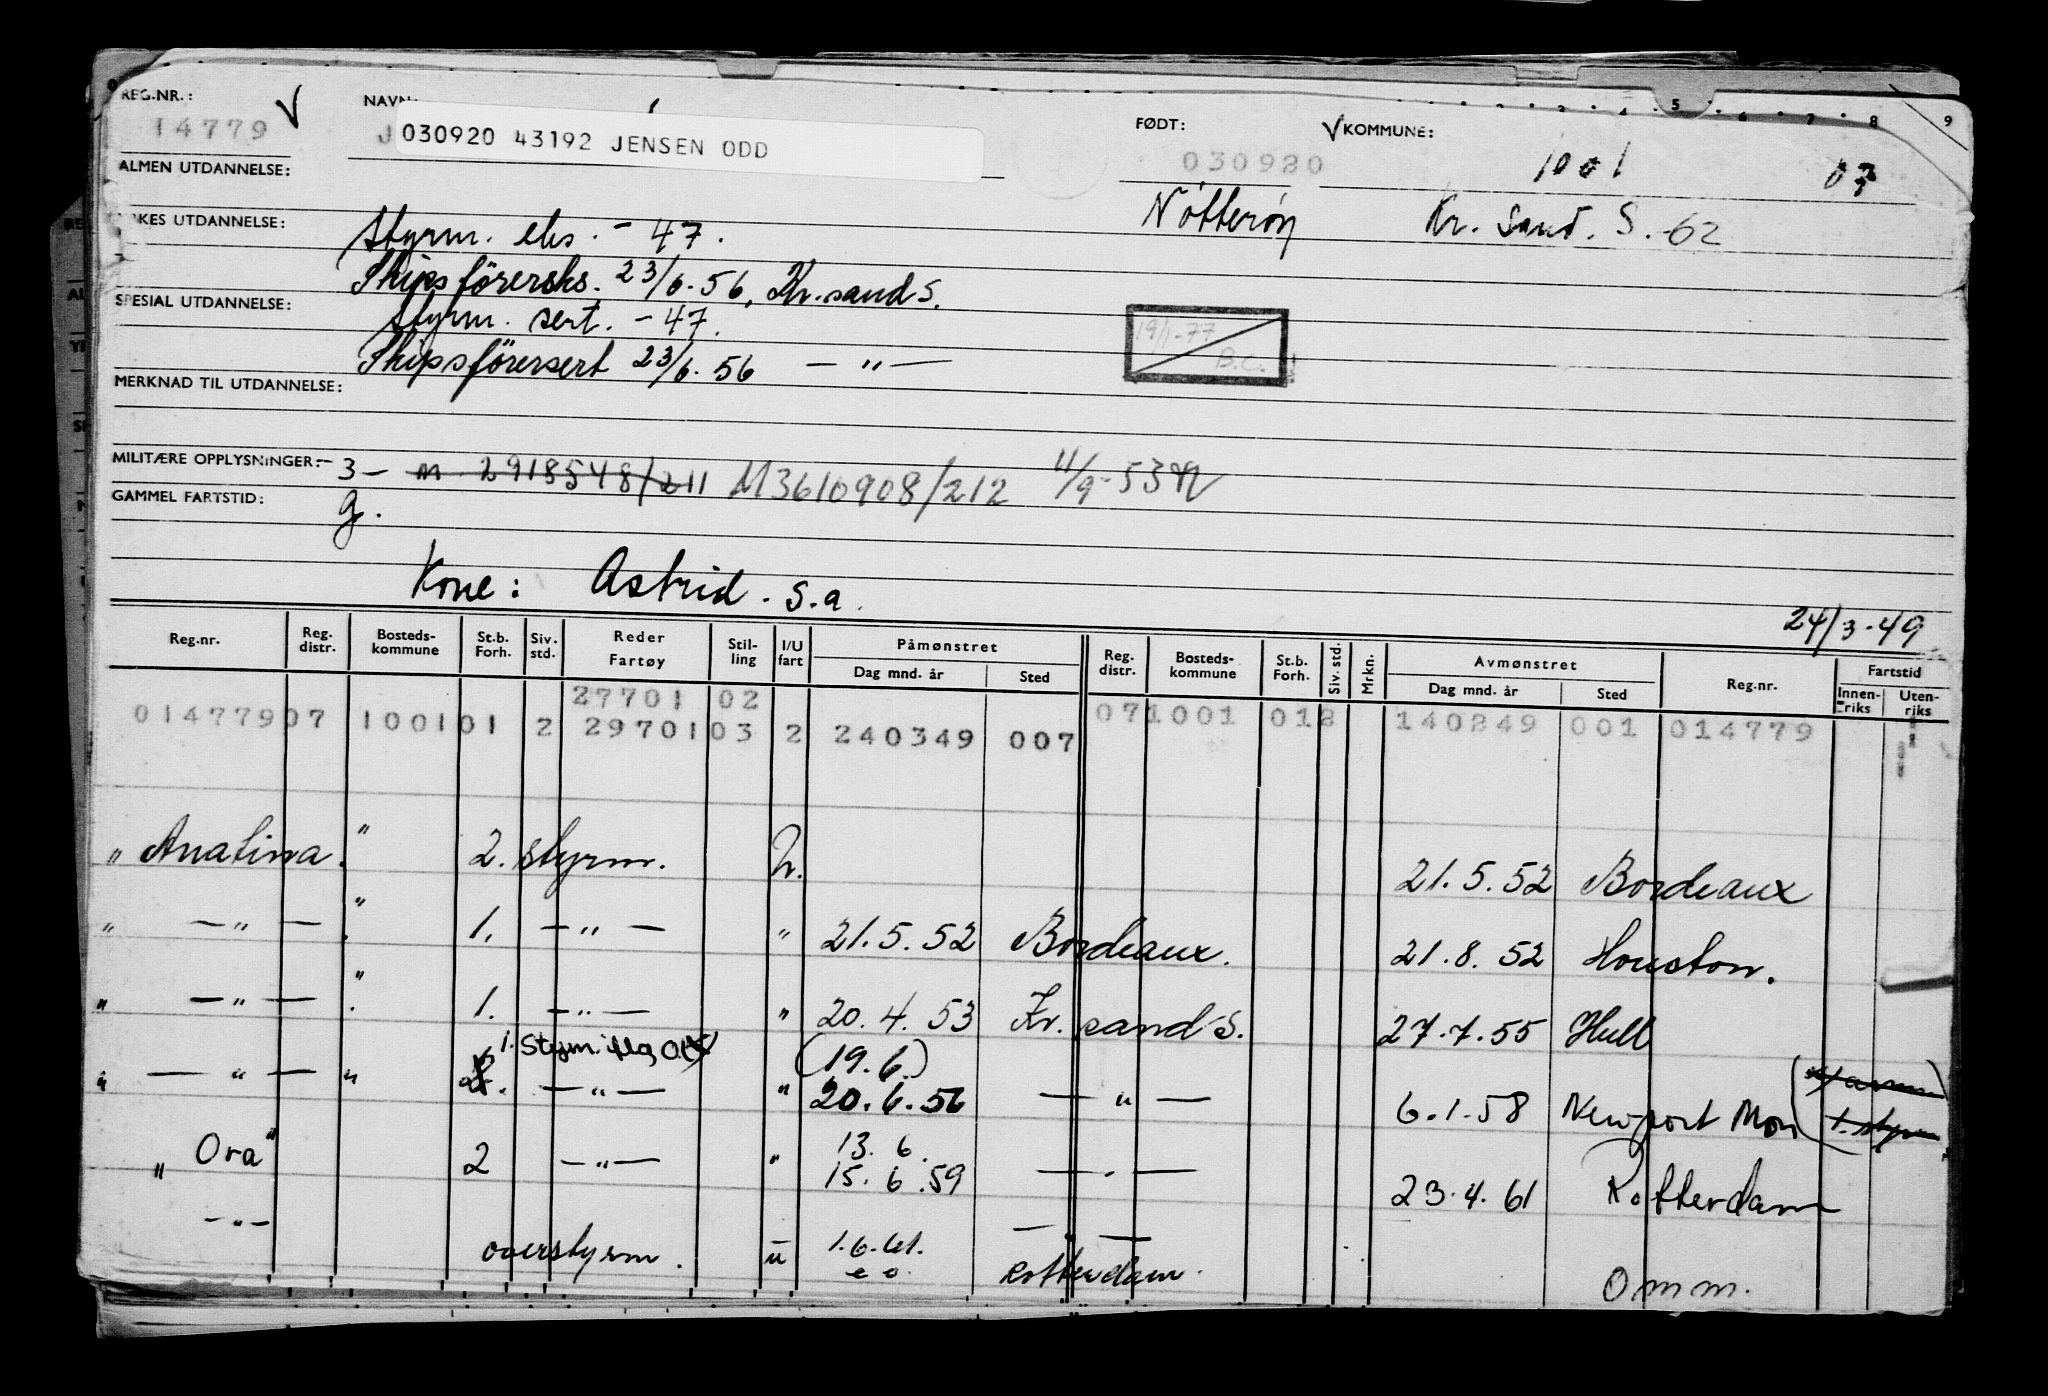 REG.NR.: NAVN: FØDT: KOMMUNE:
14779 030920 43192 JENSEN ODD 030920 1001 07
ALMEN UTDANNELSE: Nötteröy Kr. Sand. S. -62
YRKES UTDANNELSE: Styrm. eks. - 47.
Skipsförereks. 23/6.56, Kr.sand S.
SPESIAL UTDANNELSE: Styrm. sert. - 47.
Skipsförersert 23/6.56 — " —
19/1-77 B.C.
MERKNAD TIL UTDANNELSE:
MILITÆRE OPPLYSNINGER: 3 - m 2918548/211 M3610908/212 11/9-53
GAMMEL FARTSTID: g.
Kone: Astrid. s.a.
24/3-49
Reg.nr. Reg. distr. Bosteds-kommune St.b. Forh. Siv. std. Reder Fartøy Stil-ling I/U fart Påmønstret Dag mnd. år Sted Reg. distr. Bosteds-kommune St.b. Forh. Siv. std. Mrkn. Avmønstret Dag mnd. år Sted Reg.nr. Fartstid Innen-riks Uten-riks
27701 02
014779 07 1001 01 2 29701 03 2 240349 007 07 1001 01 2 140249 001 014779
" Anatina. " 2. styrm. U. 21.5.52 Bordeaux
" — " — . " 1. — " — " 21.5.52 Bordeaux. 21.8.52 Houston.
" — " — . " 1. — " — " 20.4.53 Kr. sand S. 27.7.55 Hull
1. Styrm. iflg (19.6.)
" — " — " — " — " 20.6.56 — " — 6.1.58 Newport Mon
13.6.
" Ora" 2 — " — " 15.6.59 — " — 23.4.61 Rotterdam
— " — overstyrm. u 1.6.61. — " —
e o Rotterdam. Omm.